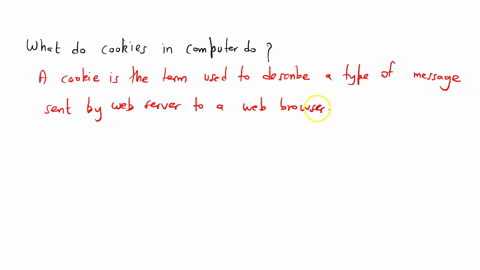 What do cookies in computer do ?
A cookie is the term used to describe a type of message
sent by web server to a web browser.